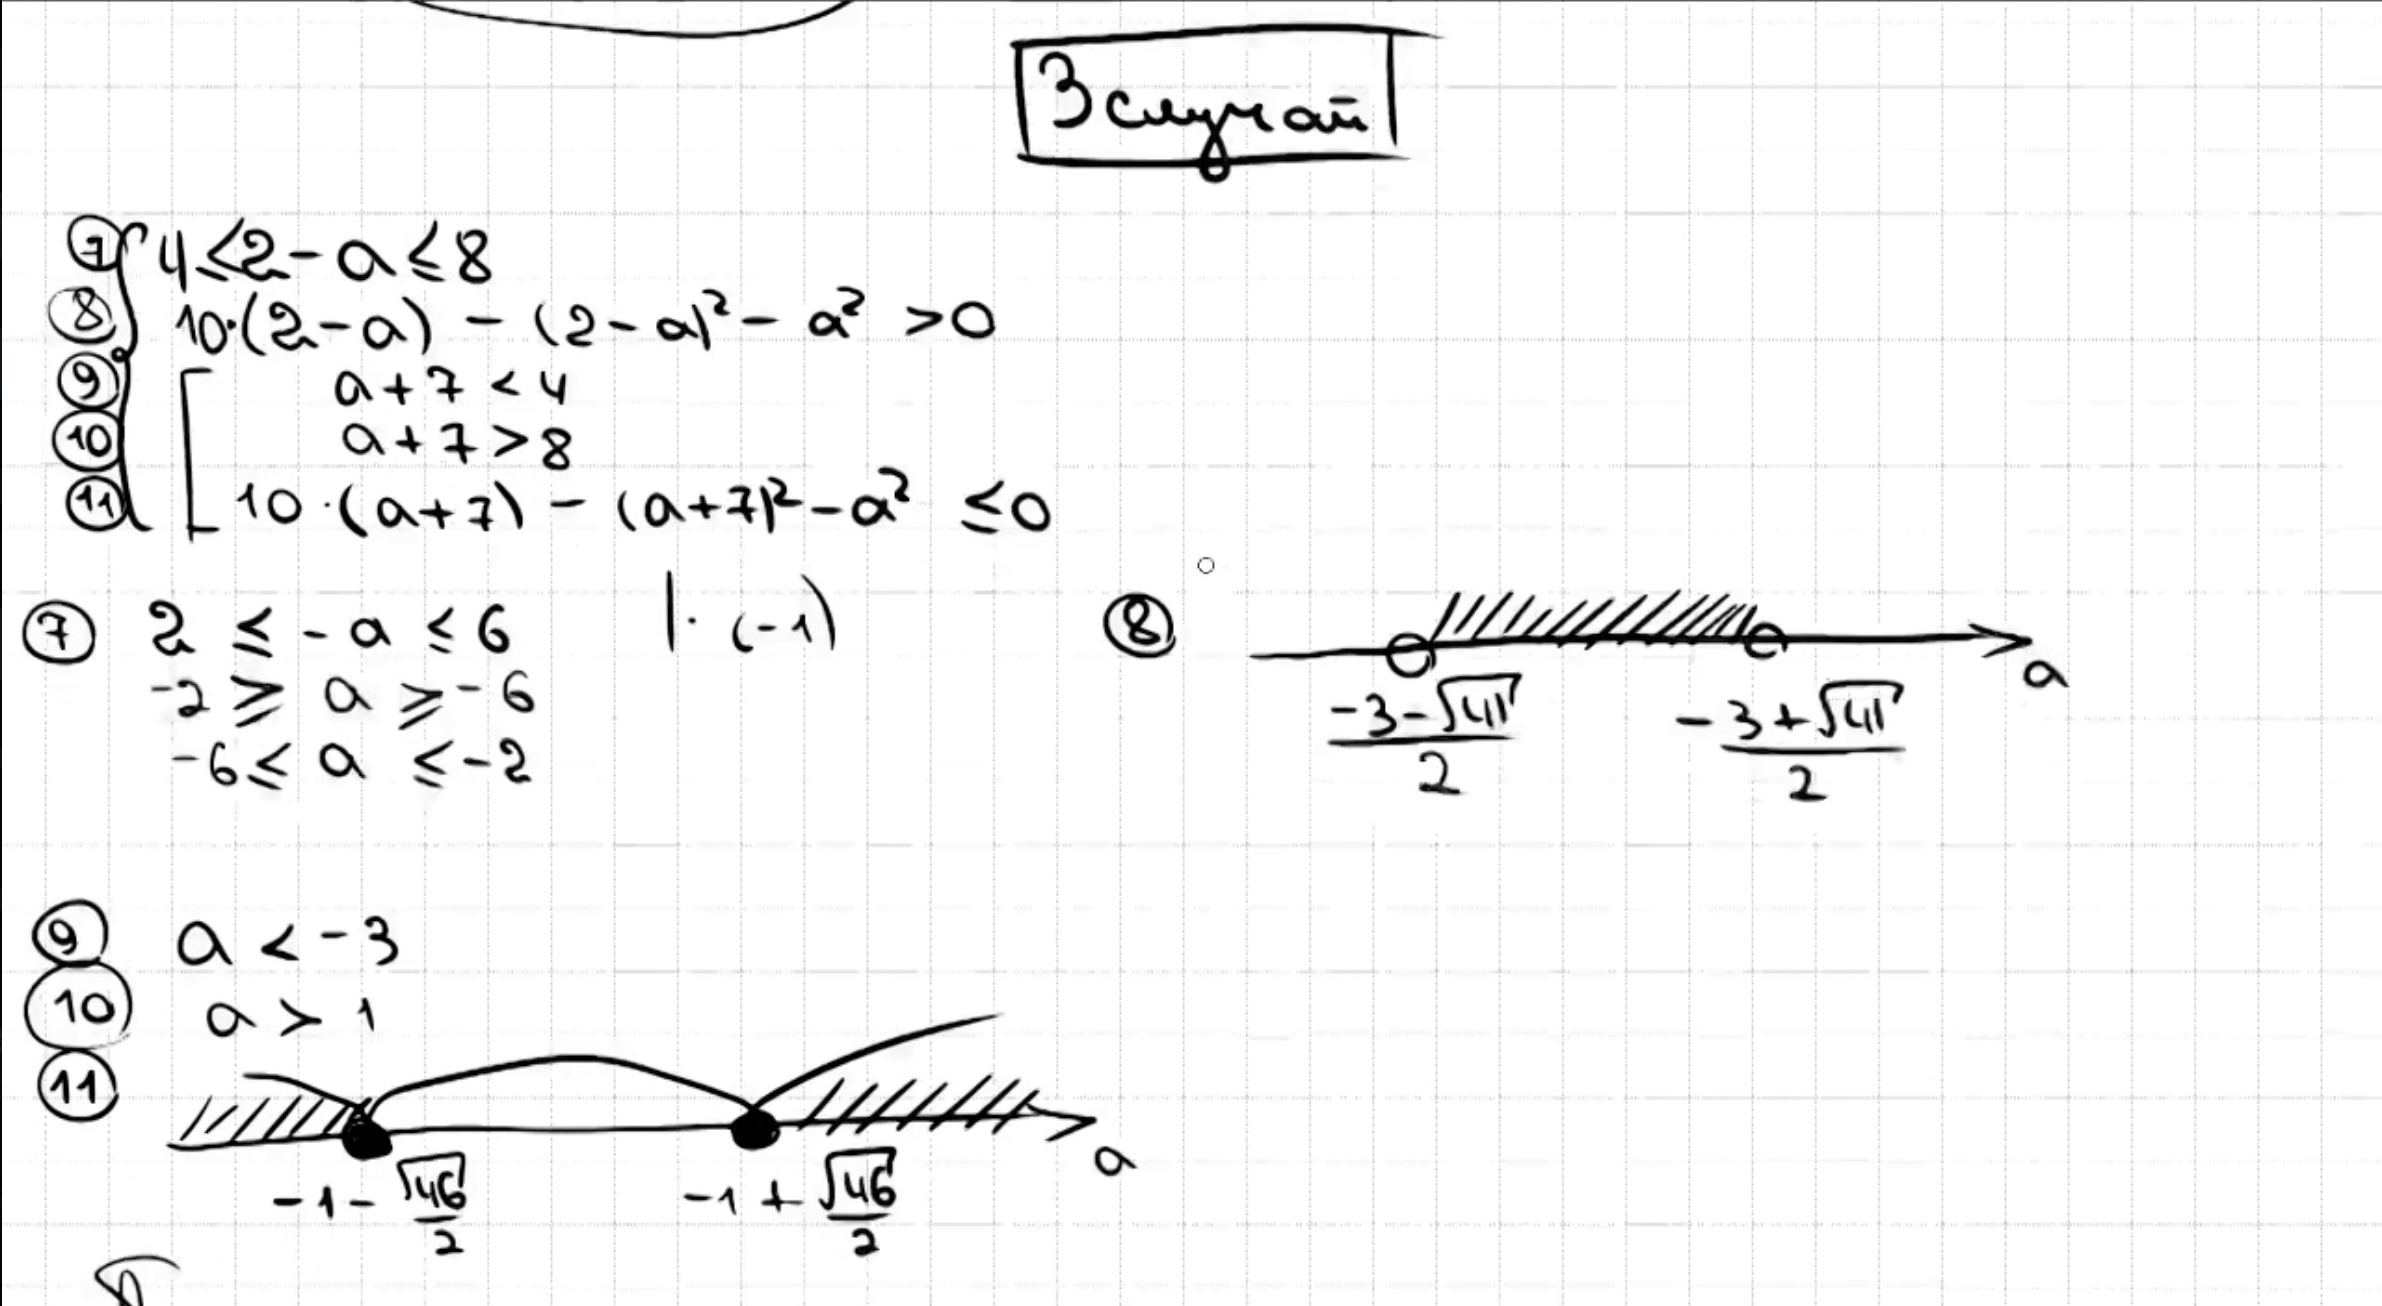 3 случай
⑦ 4 ≤ 2 - a ≤ 8
⑧ 10·(2 - a) - (2 - a)² - a² > 0
⑨ a + 7 < 4
⑩ a + 7 > 8
⑪ 10·(a + 7) - (a + 7)² - a² ≤ 0
⑦ 2 ≤ - a ≤ 6 |·(-1)
-2 ≥ a ≥ -6
-6 ≤ a ≤ -2
⑧ a
(-3-√41)/2 (-3+√41)/2
⑨ a < -3
⑩ a > 1
⑪ a
-1-√46/2 -1+√46/2